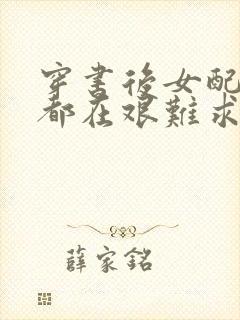 穿書後女配
都在艱難求
薛家銘